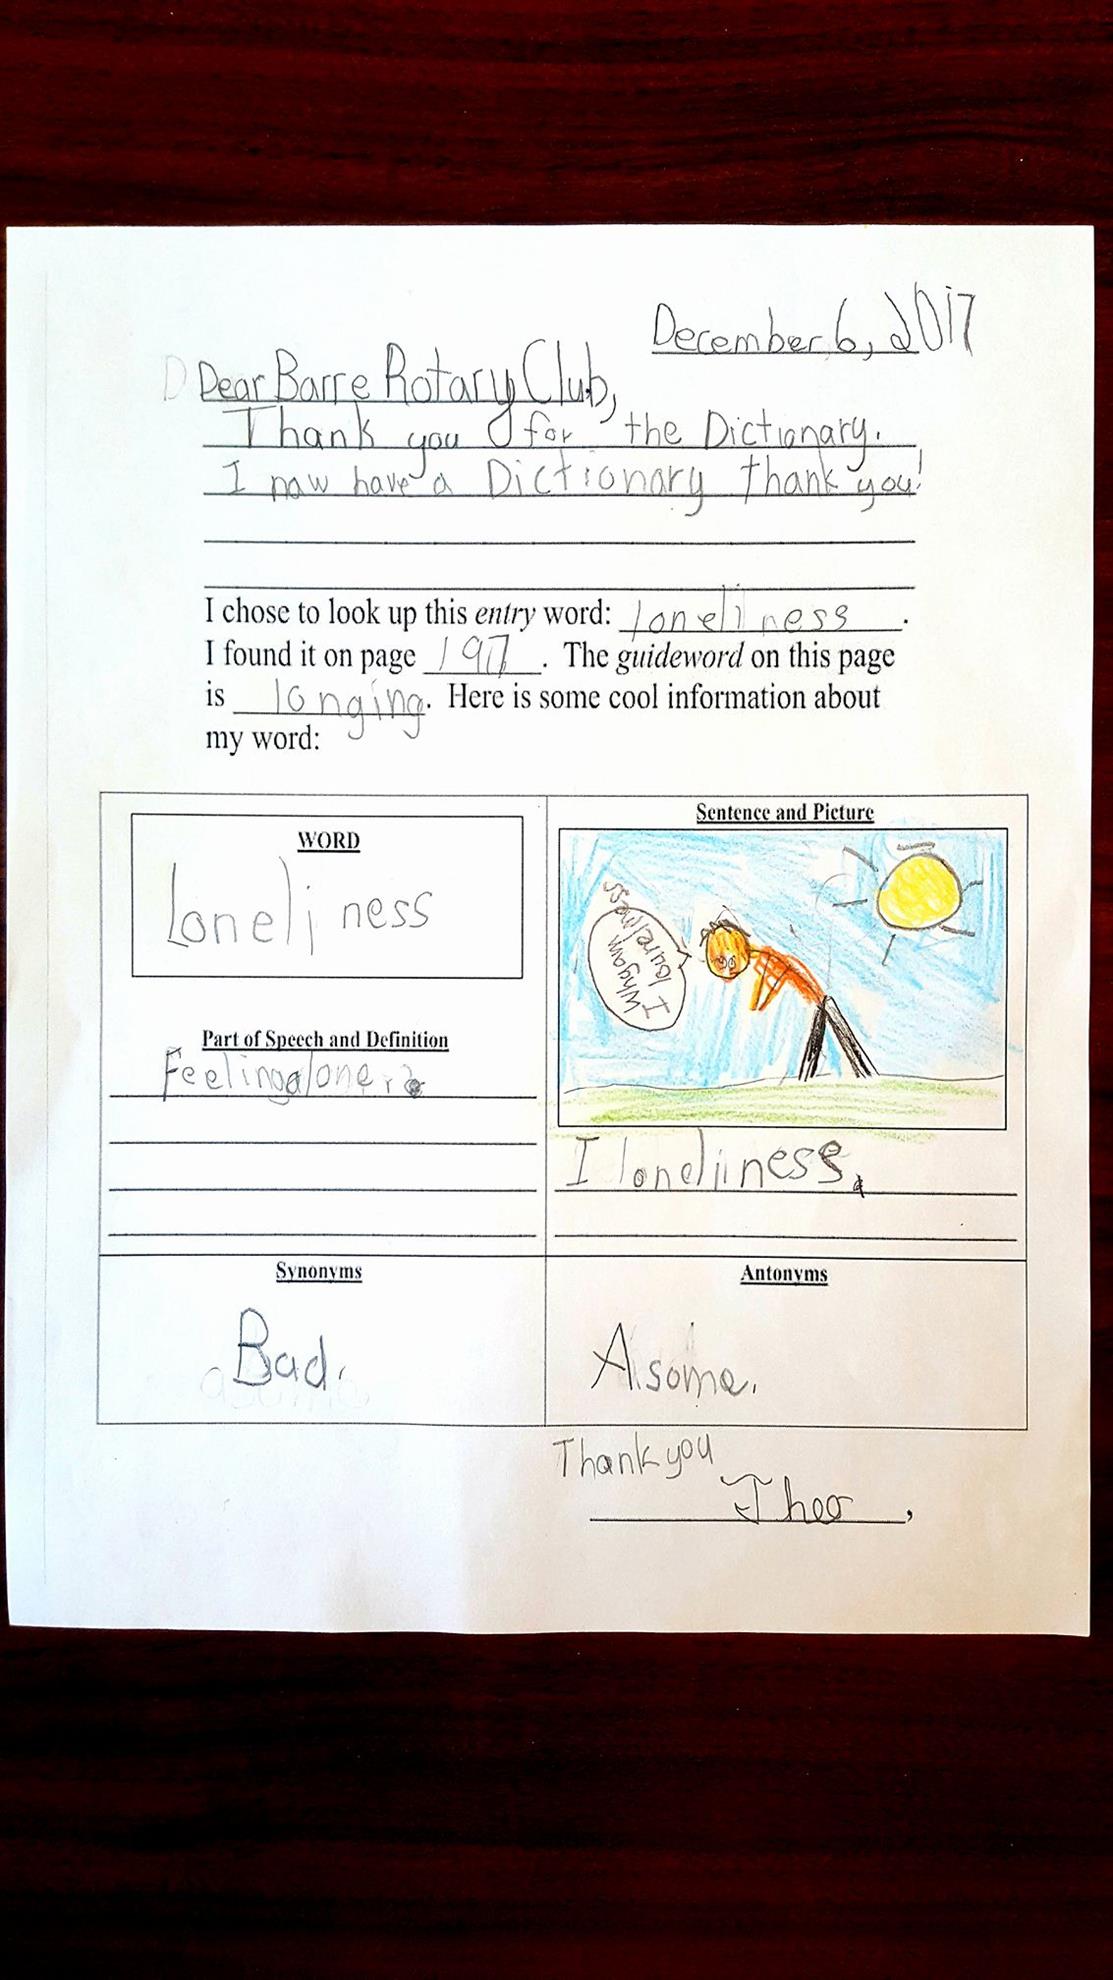 December 6, 2017
Dear Barre Rotary Club,
Thank you for the Dictionary.
I now have a Dictionary thank you!
I chose to look up this entry word: loneliness.
I found it on page 197. The guideword on this page
is longing. Here is some cool information about
my word:
WORD
Loneliness
Part of Speech and Definition
Feeling alone.
Sentence and Picture
Why am
I
I loneliness.
Synonyms
Bad.
Antonyms
Asome.
Thank you
Theo,